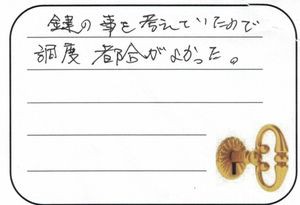 鍵の事を考えていたので
調度 都合がよかった。